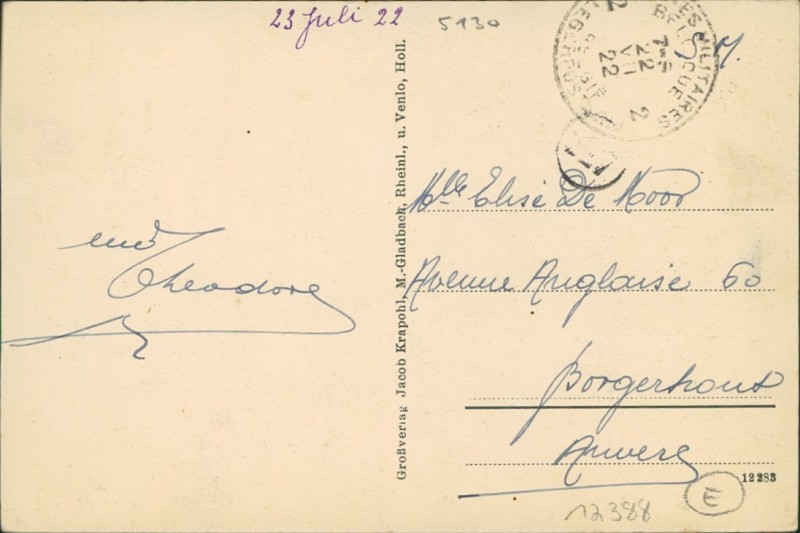 23 Juli 22
5130
S.M.
POSTES MILITAIRES
BELGIQUE
22
VII
22
2
2
Mlle Elise De Moor
Avenue Anglaise 60
Borgerhout
Anvers
Theodore
Großverlag Jacob Krapohl, M.-Gladbach, Rheinl., u. Venlo, Holl.
12283
E
12388